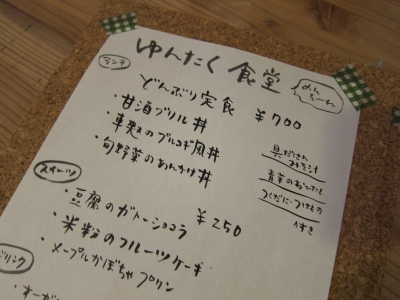 ゆんたく食堂
めんそーれ
ランチ
どんぶり定食 ¥700
・甘酒グリル丼
・車麸のプルコギ風丼
・旬野菜のあんかけ丼
具だくさん
みそ汁
青菜のおひたし
つくだに・つけもの
つき
スイーツ
・豆腐のガトーショコラ ¥250
・米粉のフルーツケーキ
・メープルかぼちゃプリン
ドリンク
・オーガ